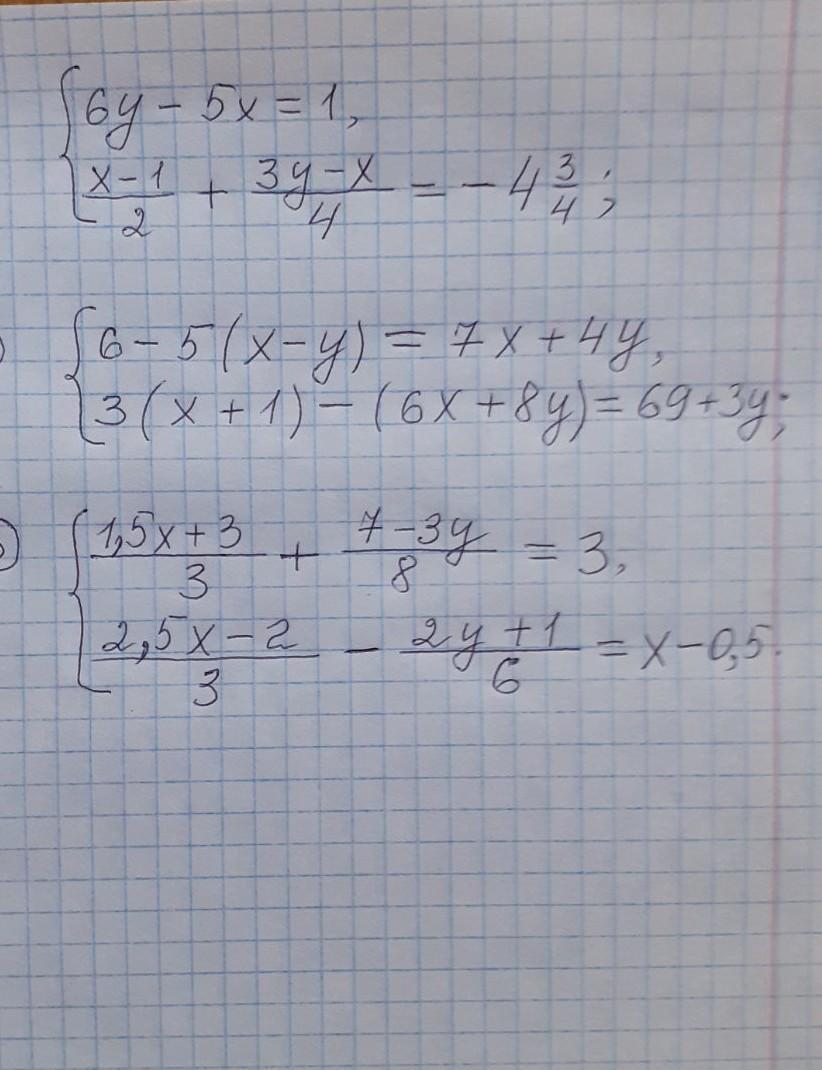 6y - 5x = 1,
(x-1)/2 + (3y-x)/4 = -4 3/4;
6 - 5(x-y) = 7x + 4y,
3(x+1) - (6x+8y) = 69+3y;
(1,5x+3)/3 + (7-3y)/8 = 3,
(2,5x-2)/3 - (2y+1)/6 = x-0,5.